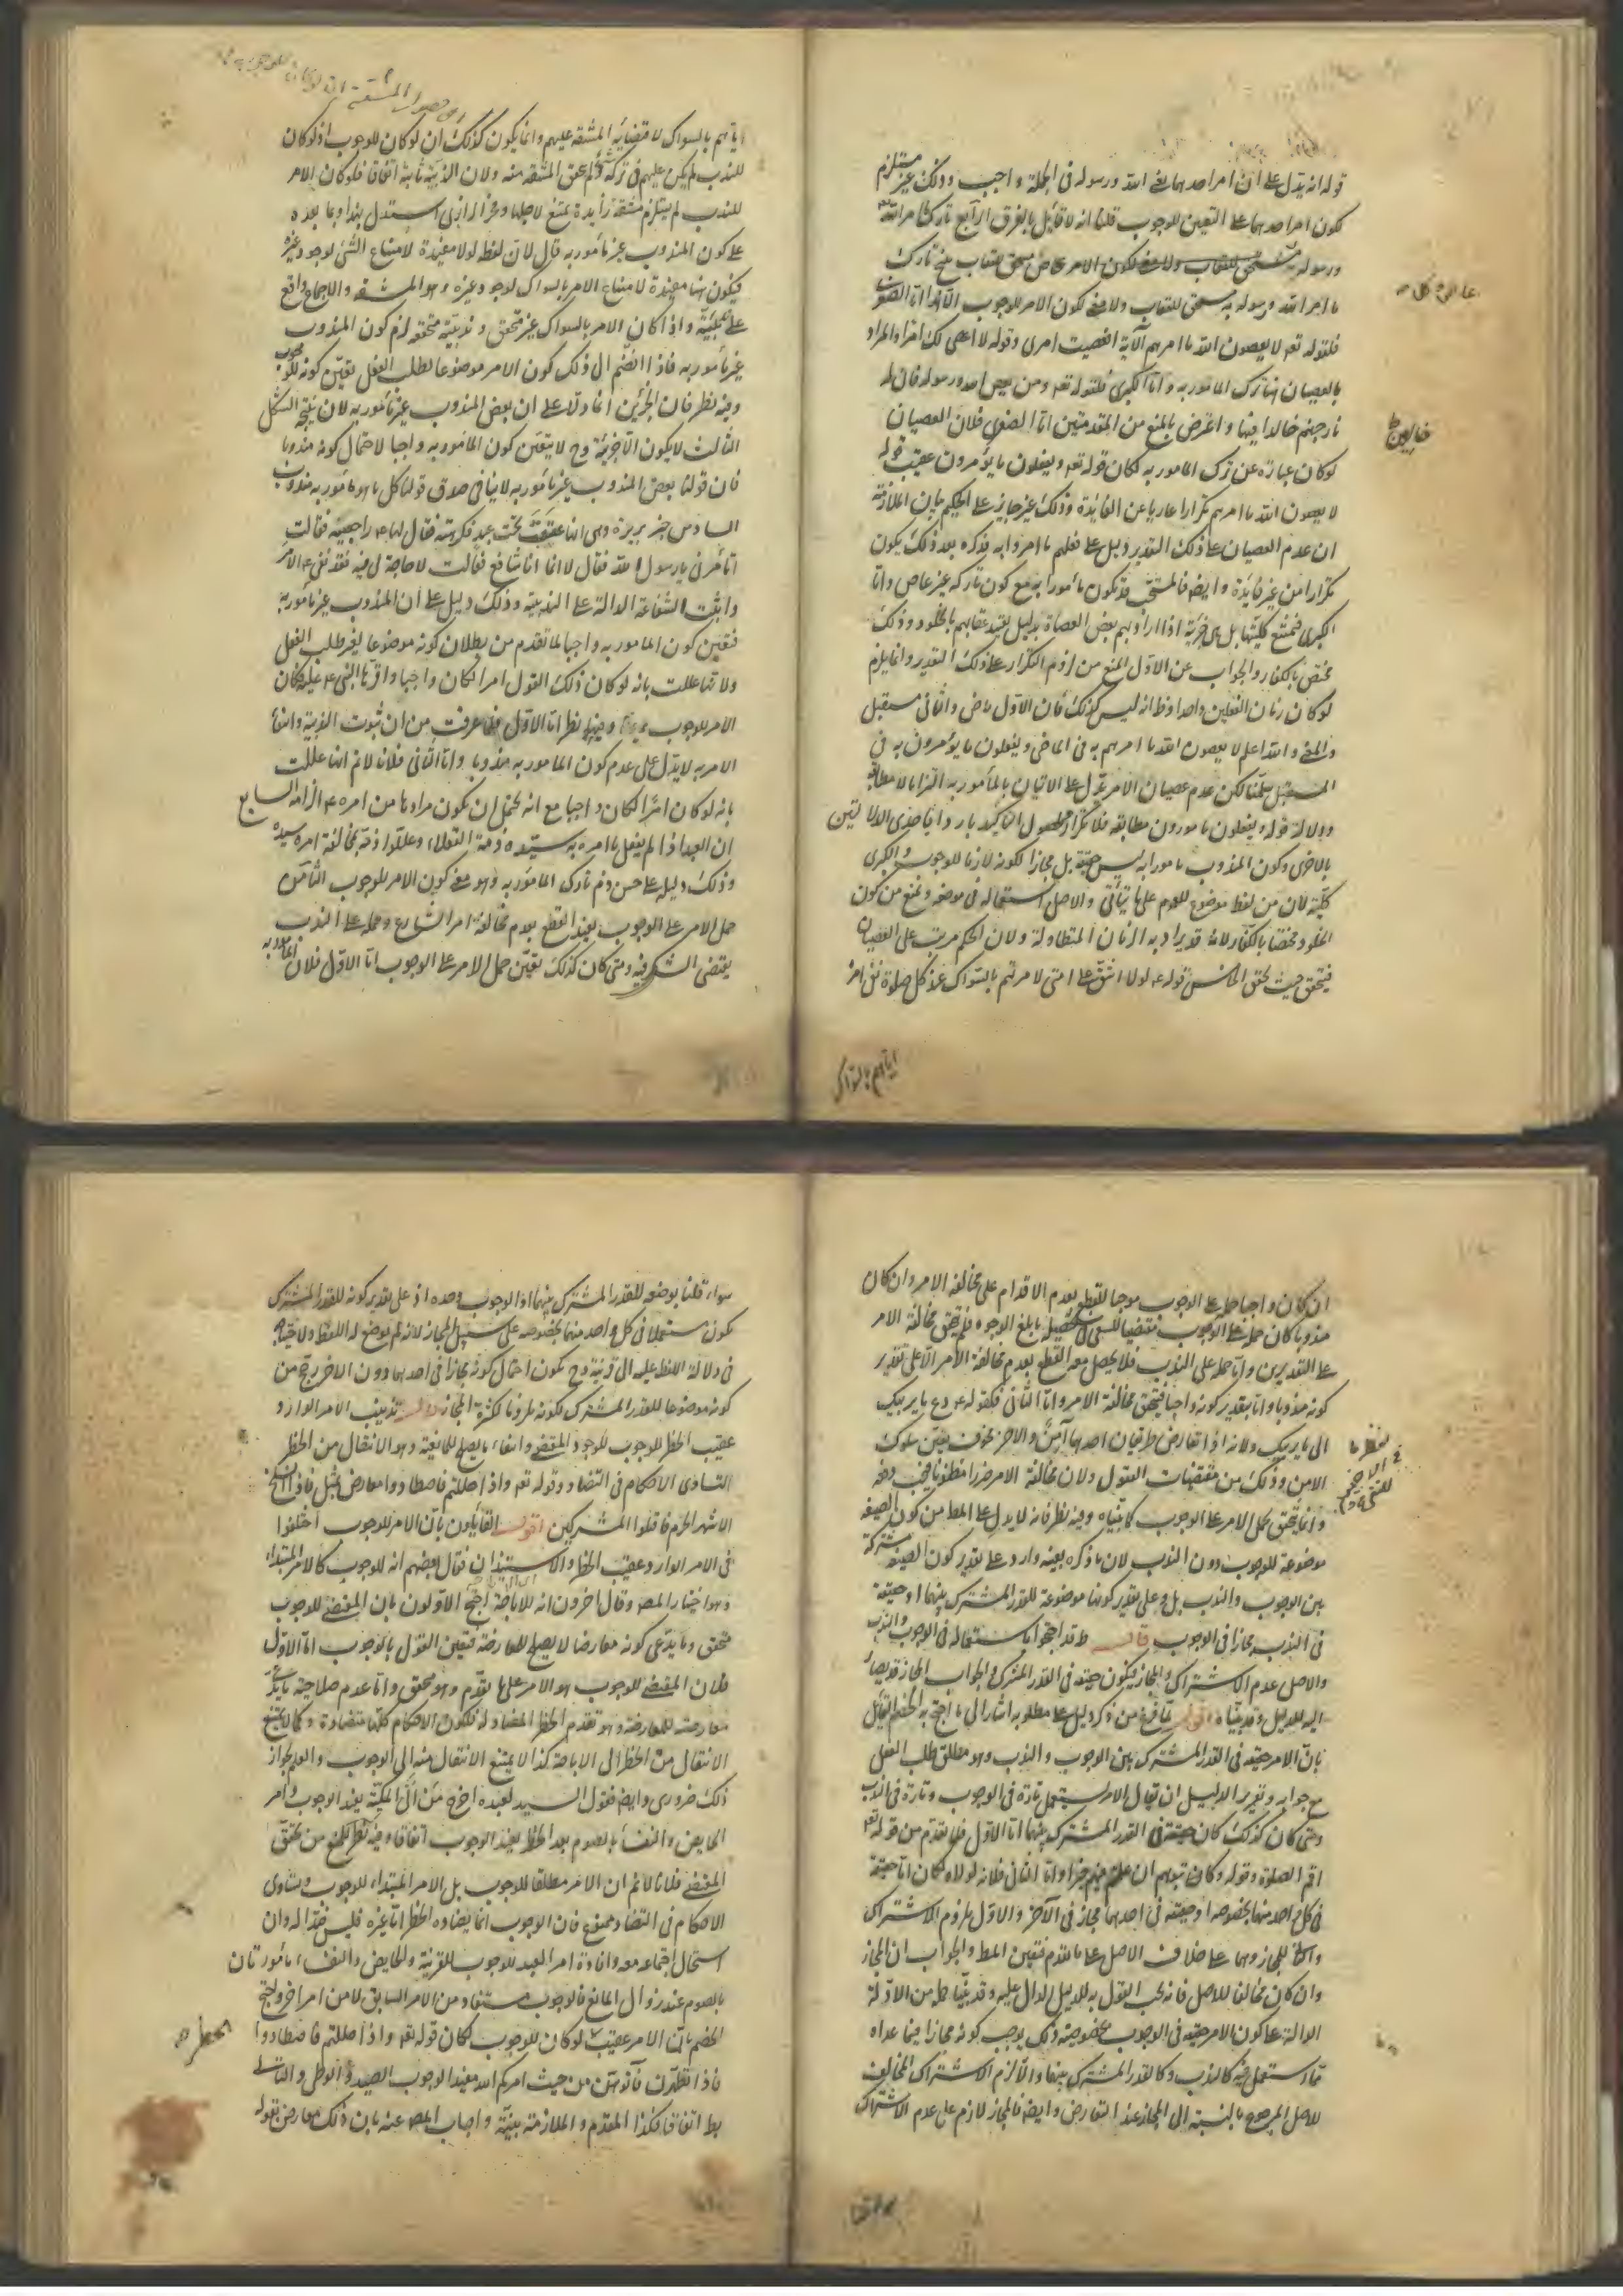 قوله انه يدل على ان امر احدهما يعنى الله ورسوله فى الجملة واجب وذلك غير مستلزم
لكون امر احدهما على التعيين للوجوب قلنا انه لا قائل بالفرق الرابع تارك ما امر الله
ورسوله به
ما امر الله ورسوله به مستحق للعقاب ولا معنى لكون الامر للوجوب الا هذا اما الصغرى
فلقوله تعه لا يعصون الله ما امرهم الآية افعصيت امرى وقوله لا اعصى لك امرا والمراد
بالعصيان ههنا ترك المامور به واما الكبرى فلقوله تعه ومن يعص الله ورسوله فان له
نار جهنم خالدا فيها واعترض بالمنع من المقدمتين اما الصغرى فلان العصيان
لو كان عبارة عن ترك المامور به لكان قوله تعه ويفعلون ما يؤمرون عقيب قوله
لا يعصون الله ما امرهم تكرارا عاريا عن الفايدة وذلك غير جايز على الحكيم بيان الملازمة
ان عدم العصيان على ذلك التقدير دليل على فعلهم ما امروا به فذكره بعد ذلك يكون
تكرارا من غير فايدة وايضا فالمستحب قد يكون مأمورا به مع كون تاركه غير عاص واما
الكبرى فنمنع كليتها بل هى جزئية اذ المراد بهم بعض العصاة بدليل تقييد عقابهم بالخلود وذلك
مختص بالكفار والجواب عن الاول المنع من لزوم التكرار على ذلك التقدير وانما يلزم
لو كان زمان الفعلين واحدا وظ انه ليس كذلك فان الاول ماض والثانى مستقبل
والمعنى والله اعلم لا يعصون الله ما امرهم به فى الماضى ويفعلون ما يؤمرون به فى
المستقبل سلمنا لكن عدم عصيان الامر يدل على الاتيان بالمأمور به التزاما لا مطابقة
ودلالة قوله ويفعلون ما يؤمرون مطابقة فلا تكرار لحصول التأكيد بارداف احدى الدلالتين
بالاخرى وكون المندوب مامورا به ليس حقيقة بل مجازا لكونه لازما للوجوب والكبرى
كلية لان من لفظ موضوع للعموم على ما يأتى والاصل استعماله فى موضعه ونمنع من كون
الخلود مختصا بالكفار لانه قد يراد به الزمان المتطاولة ولان الحكم مرتب على العصيان
فيتحقق حيث تحقق الخامس قوله عم لولا ان اشق على امتى لامرتهم بالسواك عند كل صلوة نفى امره
اياهم بالسواك
اياهم بالسواك لاقتضائه المشقة عليهم وانما يكون كذلك ان لو كان للوجوب اذ لو كان
للندب لم يكن عليهم فى تركه شئ ولم يتحقق المشقة منه ولان الندبية ثابتة اتفاقا فلو كان الامر
للندب لم يستلزم مشقة زايدة يمتنع لاجلها وفخر الرازى استدل بهذا وبما بعده
على كون المندوب غير مأمور به قال لان لفظ لولا مفيدة لامتناع الشئ لوجود غيره
فيكون ههنا مفيدة لامتناع الامر بالسواك لوجود غيره وهو المشقة والاجماع واقع
على ندبيته واذا كان الامر بالسواك غير متحقق وندبيته متحققه لزم كون المندوب
غير مأمور به فاذا انضم الى ذلك كون الامر موضوعا لطلب الفعل تعين كونه للوجوب
وفيه نظر فان الخبرين انما دلا على ان بعض المندوب غير مأمور به لان نتيجة الشكل
الثالث لا يكون الا جزئية وح لا يتعين كون المامور به واجبا لاحتمال كونه مندوبا
فان قولنا بعض المندوب غير مأمور به لا ينافى صدق قولنا كل ما هو مأمور به مندوب
السادس خبر بريرة وهى انها عتقت تحت عبد فكرهته فقال لها عم راجعيه فقالت
اتأمرنى يا رسول الله فقال لا انما انا شافع فقالت لا حاجة لى فيه فقد نفى عم الامر
واثبت الشفاعة الدالة على الندبية وذلك دليل على ان المندوب غير مأمور به
فتعين كون المامور به واجبا لما تقدم من بطلان كونه موضوعا لغير طلب الفعل
ولانها عللت بانه لو كان ذلك القول امرا لكان واجبا واقرها النبى عم عليه فكان
الامر للوجوب وفيهما نظر اما الاول فلما عرفت من ان ثبوت الندبية وانتفاء
الامر به لا يدل على عدم كون المامور به مندوبا واما الثانى فلانا لا نم انها عللت
بانه لو كان امرا لكان واجبا مع انه يحتمل ان يكون مرادها من امره عم الزامه السابع
ان العبد اذا لم يفعل ما امره به سيده ذمه العقلاء وعللوا ذمه بمخالفة امر سيده
وذلك دليل على حسن ذم تارك المأمور به وهو معنى كون الامر للوجوب الثامن
حمل الامر على الوجوب يفيد القطع بعدم مخالفة امر الشارع وحمله على الندب
يقتضى الشك فيه ومتى كان كذلك تعين حمل الامر على الوجوب اما الاول فلان المأمور به
ان كان واجبا حمله على الوجوب موجبا للقطع بعدم الاقدام على مخالفة الامر وان كان
مندوبا كان حمله على الوجوب مقتضيا للسعى فى تحصيله بابلغ الوجوه فلم يتحقق مخالفة الامر
على التقديرين واما حمله على الندب فلا يحصل معه القطع بعدم مخالفة الامر الا على تقدير
كونه مندوبا واما بتقدير كونه واجبا فيتحقق مخالفة الامر واما الثانى فلقوله عم دع ما يريبك
الى ما لا يريبك ولانه اذا تعارض طريقان احدهما آمن والاخر مخوف تعين سلوك
الامن وذلك من مقتضيات العقول ولان مخالفة الامر ضررا مظنونا فيجب دفعه
وانما يتحقق بحمل الامر على الوجوب كما بيناه وفيه نظر فانه لا يدل على المط من كون الصيغة
موضوعة للوجوب دون الندب لان ما ذكره بعينه وارد على تقدير كون الصيغة مشتركة
بين الوجوب والندب بل وعلى تقدير كونها موضوعة للقدر المشترك بينهما او حقيقة
فى الندب مجازا فى الوجوب قال طه احتجوا باستعماله فى الوجوب والندب
والاصل عدم الاشتراك والمجاز فيكون حقيقة فى القدر المشترك والجواب المجاز قد يصار
اليه للدليل وقد بيناه اقول لما فرغ من ذكر دليل على مطلوبه اشار الى ما احتج به الخصم القائل
بان الامر حقيقة فى القدر المشترك بين الوجوب والندب وهو مطلق طلب الفعل
مع جوابه وتقرير الدليل ان يقال الامر يستعمل تارة فى الوجوب وتارة فى الندب
ومتى كان كذلك كان حقيقة فى القدر المشترك بينهما اما الاول فلما تقدم من قوله تعه
اقم الصلوة وقوله فكاتبوهم ان علمتم فيهم خيرا واما الثانى فلانه لولاه لكان اما حقيقة
فى كل واحد منهما بخصوصه او حقيقة فى احدهما مجاز فى الآخر والاول ملزوم الاشتراك
والثانى للمجاز وهما على خلاف الاصل على ما تقدم فتعين المط والجواب ان المجاز
وان كان مخالفا للاصل فانه يجب القول به للدليل الدال عليه وقد بينا جملة من الادلة
الدالة على كون الامر حقيقة فى الوجوب بخصوصيته وذلك يوجب كونه مجازا فيما عداه
مما استعمل فيه كالندب وكالقدر المشترك بينهما والا لزم الاشتراك المخالف
للاصل المرجوح بالنسبة الى المجاز عند التعارض وايضا فالمجاز لازم على عدم الاشتراك
سواء قلنا بوضعه للقدر المشترك بينهما او للوجوب وحده اذ على تقدير كونه للقدر المشترك
يكون مستعملا فى كل واحد منهما بخصوصه على سبيل المجاز لانه لم يوضع له اللفظ ولاحتياجه
فى دلالة اللفظ عليه الى قرينة وح يكون احتمال كونه مجازا فى احدهما دون الاخر ارجح من
كونه موضوعا للقدر المشترك لكونه ملزوما لكثرة المجاز تذنيب الامر الوارد
عقيب الحظر للوجوب لوجود المقتضى وانتفاء ما يصلح للمانعية وهو الانتقال من الحظر
لتساوى الاحكام فى التضاد وقوله تعه واذا حللتم فاصطادوا معارض بمثل فاذا انسلخ
الاشهر الحرم فاقتلوا المشركين اقول القايلون بان الامر للوجوب اختلفوا
فى الامر الوارد عقيب الحظر والاستيذان فقال بعضهم انه للوجوب كالامر المبتداء
وهو اختيار المصه وقال اخرون انه للاباحة احتج الاولون بان المقتضى للوجوب
متحقق وما يدعى كونه معارضا لا يصلح للمعارضة فتعين القول بالوجوب اما الاول
فلان المقتضى للوجوب هو الامر على ما تقدم وهو متحقق واما عدم صلاحية ما يدعى
معارضته للمعارضة وهو تقدم الحظر المضاد له فلكون الاحكام كلها متضادة وكما لا يمتنع
الانتقال من الحظر الى الاباحة كذا لا يمتنع الانتقال منه الى الوجوب والعلم بجواز
ذلك ضرورى وايضا فقول السيد لعبده اخرج من الى المكتب يفيد الوجوب وامر
الحايض والنفساء بالصوم بعد الحظر يفيد الوجوب اتفاقا وفيه نظر للمنع من تحقق
المقتضى فلانا لا نم ان الامر مطلقا للوجوب بل الامر المبتداء للوجوب وتساوى
الاحكام فى التضاد ممنوع فان الوجوب انما يضاده الحظر اما غيره فليس ضدا له وان
استحال اجتماعه معه وافادة امر العبد للوجوب للقرينة والحايض والنفساء مأمورتان
بالصوم عند زوال المانع فالوجوب مستفاد من الامر السابق لا من امر اخر واحتج
الخصم بان الامر عقيب لو كان للوجوب لكان قوله تعه واذا حللتم فاصطادوا
فاذا تطهرن فأتوهن من حيث امركم الله مفيدا لوجوب الصيد والوطى والتالى
بط اتفاقا فكذا المقدم والملازمة بينة واجاب المصه عنه بان ذلك معارض بقوله